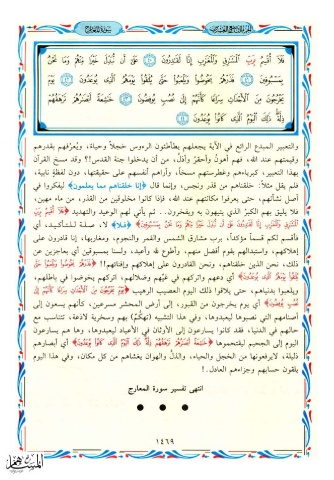 سورة المعارج
الجزء التاسع والعشرون
فَلَا أُقْسِمُ بِرَبِّ الْمَشَارِقِ وَالْمَغَارِبِ إِنَّا لَقَادِرُونَ ﴿٤٠﴾ عَلَىٰ أَن نُّبَدِّلَ خَيْرًا مِّنْهُمْ وَمَا نَحْنُ
بِمَسْبُوقِينَ ﴿٤١﴾ فَذَرْهُمْ يَخُوضُوا وَيَلْعَبُوا حَتَّىٰ يُلَاقُوا يَوْمَهُمُ الَّذِي يُوعَدُونَ ﴿٤٢﴾ يَوْمَ
يَخْرُجُونَ مِنَ الْأَجْدَاثِ سِرَاعًا كَأَنَّهُمْ إِلَىٰ نُصُبٍ يُوفِضُونَ ﴿٤٣﴾ خَاشِعَةً أَبْصَارُهُمْ تَرْهَقُهُمْ
ذِلَّةٌ ذَٰلِكَ الْيَوْمُ الَّذِي كَانُوا يُوعَدُونَ ﴿٤٤﴾
والتعبير المبدع الرائع في الآية يجعلهم يطأطئون الرءوس خجلاً وحياءً، ويُعرّفهم بقدرهم
وقيمتهم عند الله، فهم أهونُ وأحقرُ وأذلُّ، من أن يدخلوا جنة القدس!! وقد مسخ القرآن
بهذا التعبير، كبرياءهم وغطرستهم مسخاً، وأراهم أنفسهم على حقيقتها، دون لفظةٍ نابية،
فلم يقل مثلاً: خلقناهم من قذرٍ ونجس، وإنما قال ﴿إنا خلقناهم مما يعلمون﴾ ليفكروا في
أصل نشأتهم، حتى يعرفوا مكانتهم عند الله، فإذا كانوا مخلوقين من القذر، من ماء مهين،
فلا يليق بهم الكبرُ الذي يتيهون به ويفخرون.. ثم يأتي لهم الوعيد والتهديد ﴿فَلَا أُقْسِمُ بِرَبِّ
الْمَشَارِقِ وَالْمَغَارِبِ إِنَّا لَقَادِرُونَ عَلَىٰ أَن نُّبَدِّلَ خَيْرًا مِّنْهُمْ وَمَا نَحْنُ بِمَسْبُوقِينَ﴾ ﴿فلا﴾ لا، صلة للتأكيد، أي
فأقسم لكم قسماً مؤكداً، برب مشارق الشمس والقمر والنجوم، ومغاربها، إنا قادرون على
إهلاكهم، واستبدالهم بقوم أفضل منهم، وأطوع لله وأعبد، ولسنا بمسبوقين أي بعاجزين عن
ذلك، نحن الذين خلقناهم، ونحن القادرون على إهلاكهم وإفنائهم!! ﴿فَذَرْهُمْ يَخُوضُوا وَيَلْعَبُوا حَتَّىٰ
يُلَاقُوا يَوْمَهُمُ الَّذِي يُوعَدُونَ﴾ أي دعهم واتركهم في غيّهم وضلالهم، اتركهم يخوضوا في باطلهم،
ويلعبوا بدنياهم، حتى يلاقوا ذلك اليوم العصيب الرهيب ﴿يَوْمَ يَخْرُجُونَ مِنَ الْأَجْدَاثِ سِرَاعًا كَأَنَّهُمْ إِلَىٰ
نُصُبٍ يُوفِضُونَ﴾ أي يوم يخرجون من القبور، إلى أرض المحشر مسرعين، كأنهم يسعون إلى
أصنامهم التي نصبوها ليعبدوها، وفي هذا التشبيه (تهكُّمٌ) بهم وسخرية لاذعة، تتناسب مع
حالهم في الدنيا، فقد كانوا يسارعون إلى الأوثان في الأعياد ليعبدوها، وها هم يسارعون
اليوم إلى الجحيم ليقتحموها ﴿خَاشِعَةً أَبْصَارُهُمْ تَرْهَقُهُمْ ذِلَّةٌ ذَٰلِكَ الْيَوْمُ الَّذِي كَانُوا يُوعَدُونَ﴾ أي أبصارهم
ذليلة، لايرفعونها من الخجل والحياء، والذلُّ والهوان يغشاهم من كل مكان، وفي هذا اليوم
يلقون حسابهم وجزاءهم العادل..!
انتهى تفسير سورة المعارج
١٤٦٩